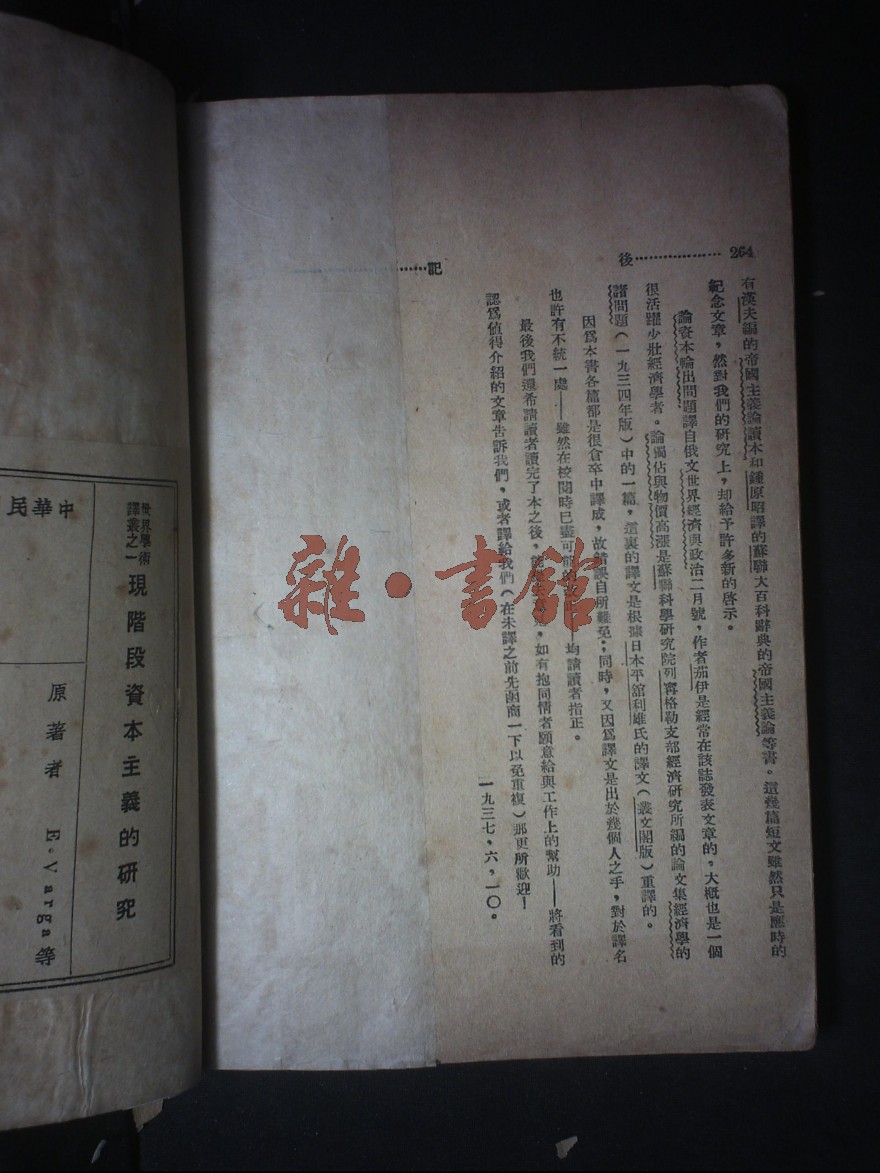 264
後
記
有漢夫編的帝國主義論讀本和鍾原昭譯的蘇聯大百科辭典的帝國主義論等書。這幾篇短文雖然只是應時的
紀念文章,然對我們的研究上,却給予許多新的啓示。
論資本輸出問題譯自俄文世界經濟與政治二月號,作者茄伊是經常在該誌發表文章的。大概也是一個
很活躍少壯經濟學者。論獨佔與物價高漲是蘇聯科學研究院列寗格勒支部經濟研究所編的論文集經濟學的
諸問題(一九三四年版)中的一篇,這裏的譯文是根據日本平舘利雄氏的譯文(叢文閣版)重譯的。
因爲本書各篇都是很倉卒中譯成,故錯誤自所難免;同時,又因爲譯文是出於幾個人之手,對於譯名
也許有不統一處——雖然在校閱時已盡可能的 均請讀者指正。
最後我們還希請讀者讀完了本之後,能 如有抱同情者願意給與工作上的幫助——將看到的
認爲値得介紹的文章告訴我們,或者譯給我們(在未譯之前先函商一下以免重複)那更所歡迎!
一九三七,六,一〇。
雜·書館
世界學術
譯叢之一
現階段資本主義的研究
原著者 E·Varga等
中華民